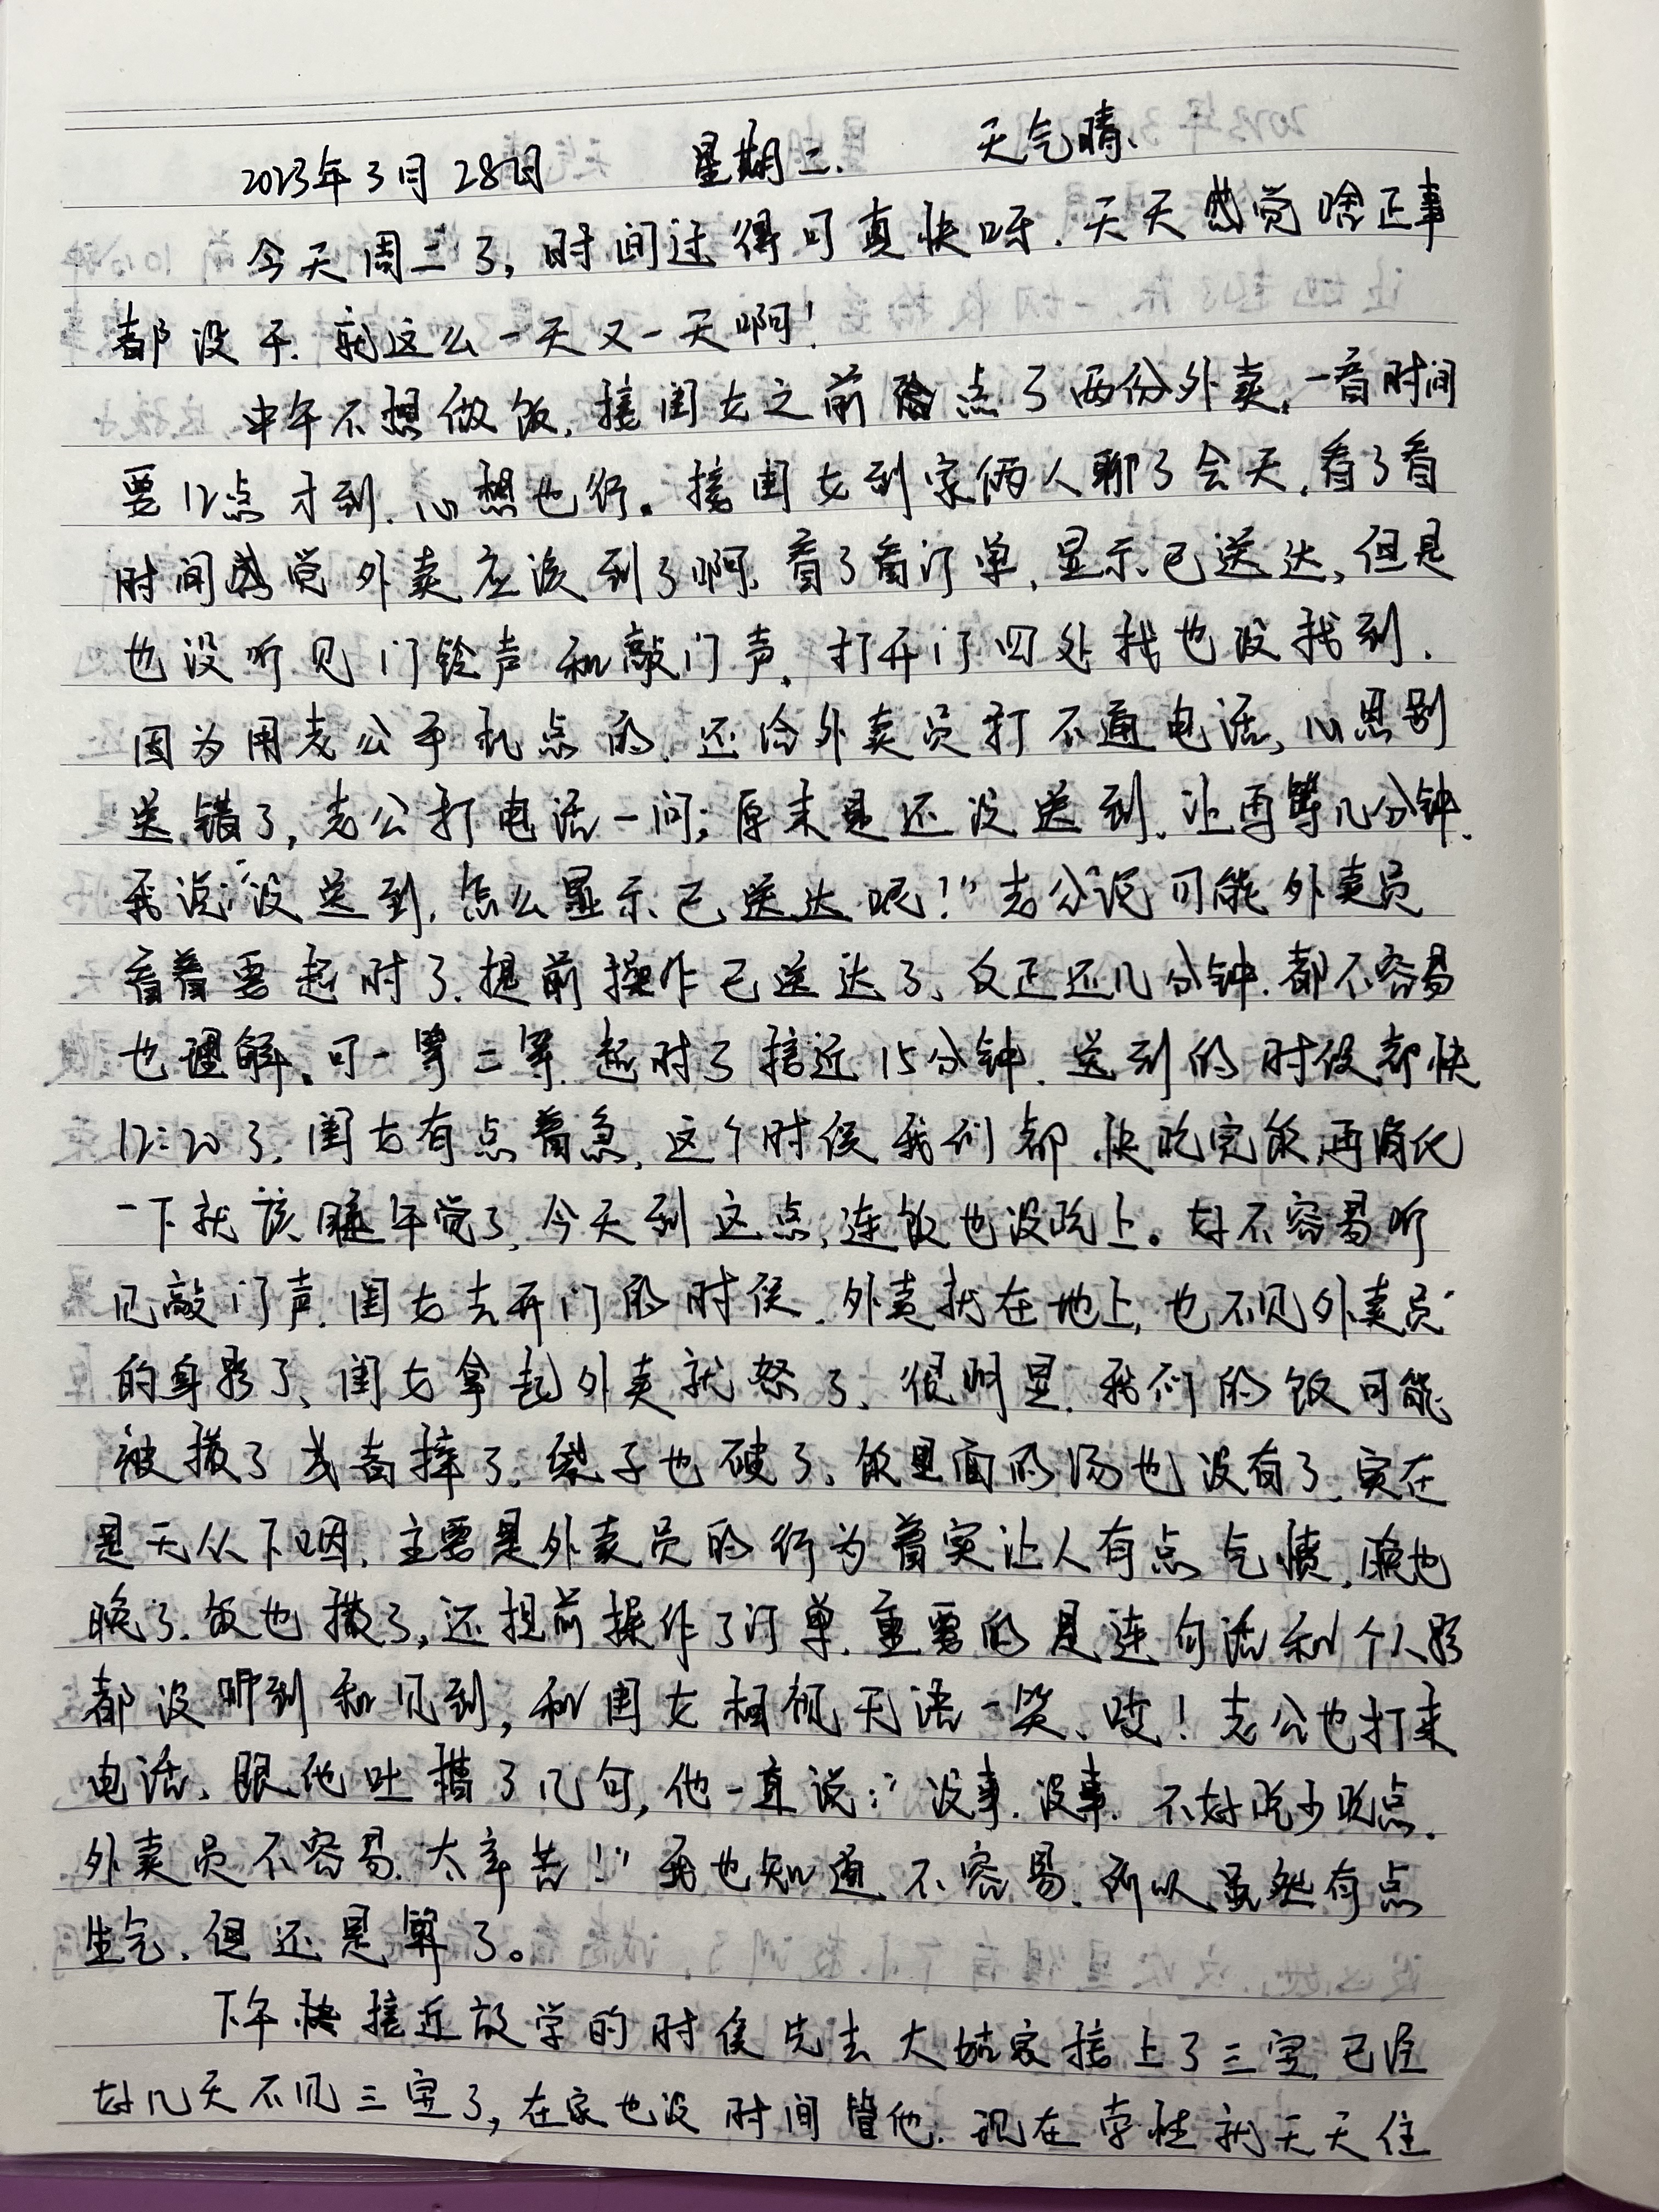 2023年3月28日 星期二. 天气晴.
今天周二了,时间过得可真快呀.天天感觉啥正事
都没干.就这么一天又一天啊!
中午不想做饭.接闺女之前点了两份外卖.一看时间
要12点才到.心想也行。接闺女到家俩人聊了会天.看了看
时间感觉外卖应该到了啊.看了看订单,显示已送达,但是
也没听见门铃声和敲门声.打开门四处找也没找到.
因为用老公手机点的.还给外卖员打不通电话,心思别
送错了,老公打电话一问;原来是还没送到.让再等几分钟.
我说:“没送到,怎么显示已送达呢!”老公说可能外卖员
看着要超时了.提前操作已送达了、反正还几分钟.都不容易
也理解。可一等二等.超时了接近15分钟.送到的时候都快
12:20了.闺女有点着急,这个时候我们都快吃完饭再消化
一下就该睡午觉了,今天到这点,连饭也没吃上。好不容易听
见敲门声.闺女去开门的时候.外卖就在地上,也不见外卖员
的身影了、闺女拿起外卖就怒了、很明显.我们的饭可能
被撒了或者摔了.袋子也破了.饭里面的汤也没有了.实在
是无从下咽.主要是外卖员的行为着实让人有点气愤,晚也
晚了.饭也撒了,还提前操作了订单.重要的是连句话和个人影
都没听到和见到,和闺女相视无语一笑、哎!老公也打来
电话、跟他吐槽了几句,他一直说:“没事.没事.不好吃少吃点.
外卖员不容易.太辛苦!”我也知道不容易.所以虽然有点
生气.但还是算了。
下午快接近放学的时侯先去大姑家接上了三宝.已经
好几天不见三宝了,在家也没时间管他.现在索性就天天住